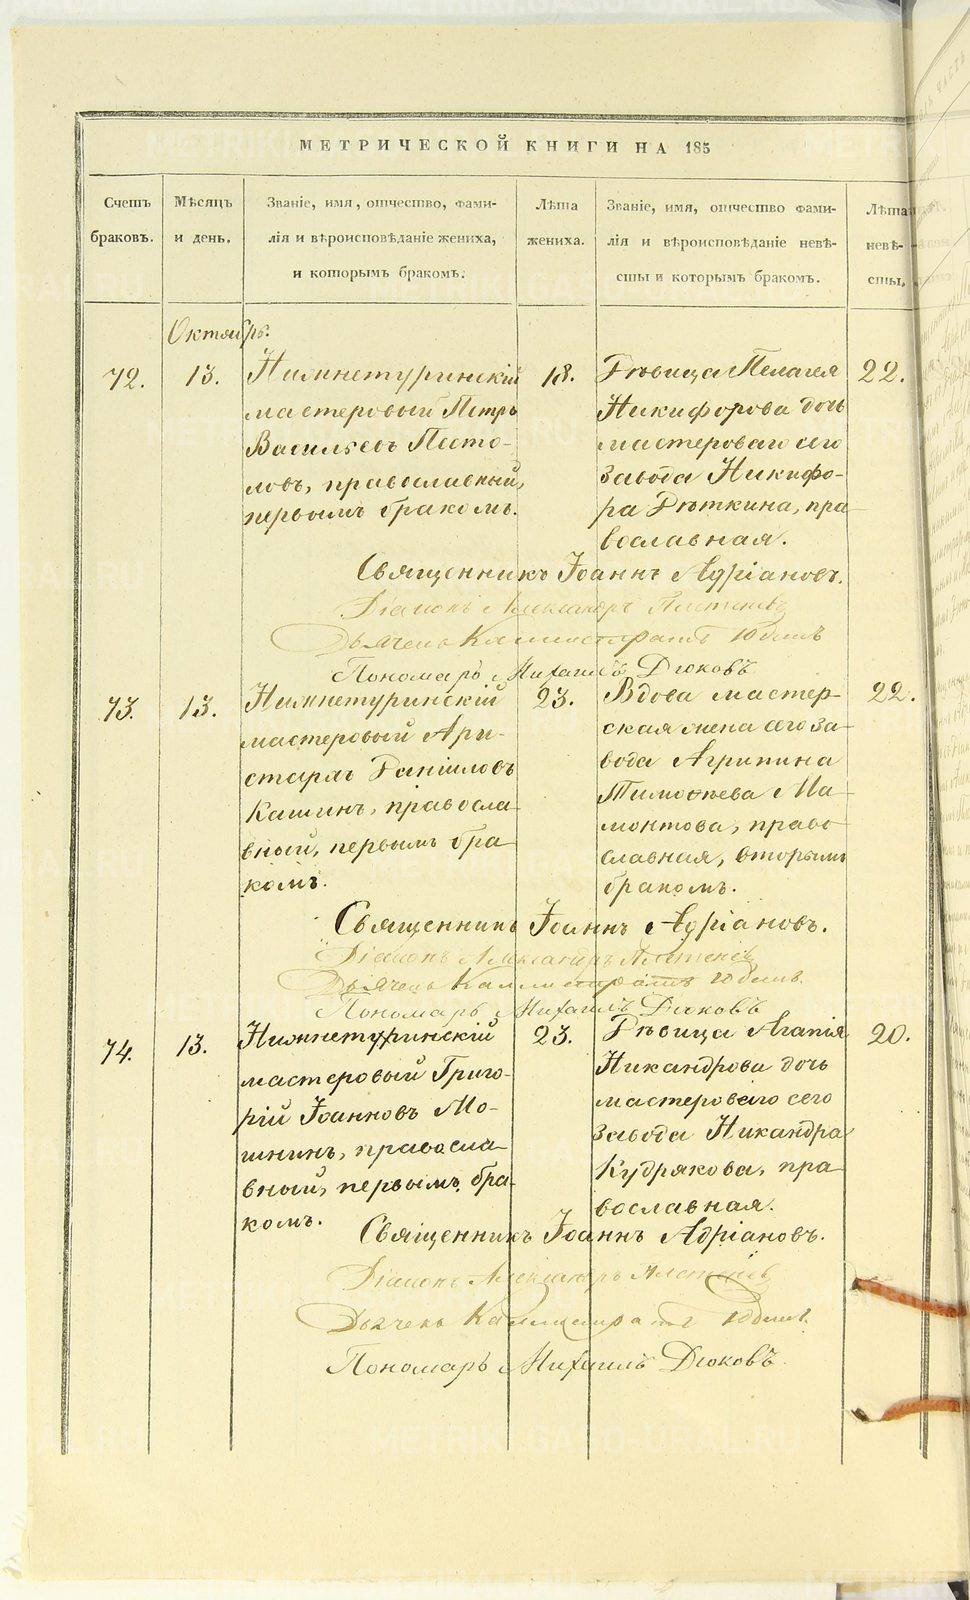 МЕТРИЧЕСКОЙ КНИГИ НА 185
Счетъ браковъ.
Мѣсяцъ и день.
Званіе, имя, отчество, фами-
лія и вѣроисповѣданіе жениха,
и которымъ бракомъ.
Лѣта жениха.
Званіе, имя, отчество фами-
лія и вѣроисповѣданіе невѣ-
сты и которымъ бракомъ.
Лѣта невѣ-
сты.
Октябрь.
72.
13.
Нижнетуринскій
мастеровый Петръ
Васильевъ Песто-
ловъ, православный,
первымъ бракомъ.
18.
Дѣвица Пелагея
Никифорова дочь
мастероваго сего
завода Никифо-
ра Рѣткина, пра-
вославная.
22.
Священникъ Іоаннъ Адріановъ.
Діаконъ Александръ
Дьячекъ Каллистратъ
Пономарь Михаилъ Дюковъ
73.
13.
Нижнетуринскій
мастеровый Ари-
стархъ Даніиловъ
Кашинъ, правосла-
вный, первымъ бра-
комъ.
23.
Вдова мастер-
ская жена сего за-
вода Агрипина
Тимоѳеева Ма-
монтова, право-
славная, вторымъ
бракомъ.
22.
Священникъ Іоаннъ Адріановъ.
Діаконъ Александръ
Дьячекъ Каллистратъ
Пономарь Михаилъ Дюковъ
74.
13.
Нижнетуринскій
мастеровый Григо-
рій Іоанновъ Мо-
шнинъ, правосла-
вный, первымъ бра-
комъ.
23.
Дѣвица Агапія
Никандрова дочь
мастероваго сего
завода Никандра
Кудрякова, пра-
вославная.
20.
Священникъ Іоаннъ Адріановъ.
Діаконъ Александръ
Дьячекъ Каллистратъ
Пономарь Михаилъ Дюковъ.